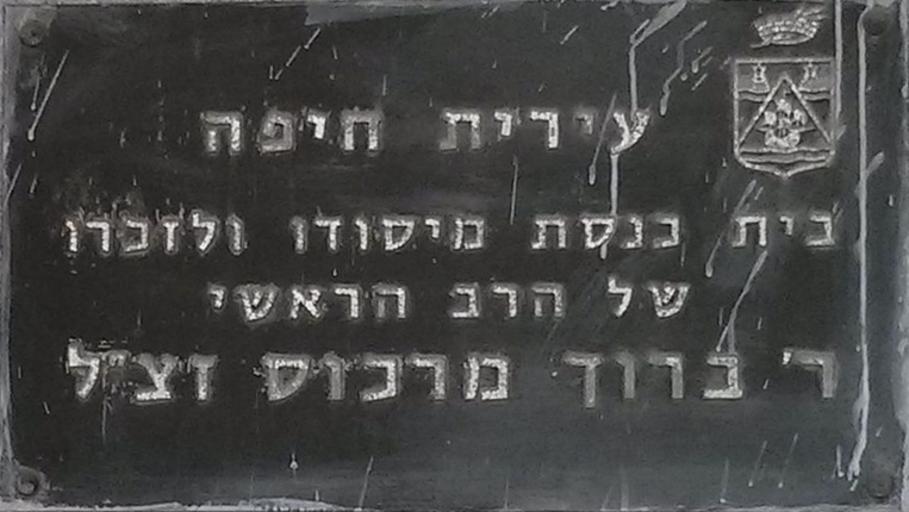 עירית חיפה
בית כנסת מיסודו ולזכרו
של הרב הראשי
ר' ברוך מרכוס זצ"ל